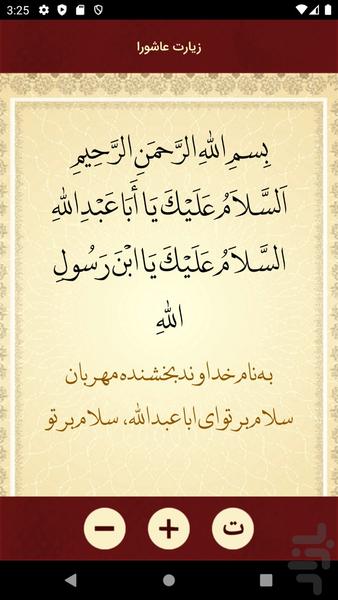 3:25
زیارت عاشورا
بِسمِ اللهِ الرَّحمَنِ الرَّحِیمِ
اَلسَّلاَمُ عَلَیْكَ یَا أَبَا عَبْدِ اللهِ
السَّلاَمُ عَلَیْكَ یَا ابْنَ رَسُولِ
اللهِ
به نام خداوند بخشنده مهربان
سلام بر تو ای ابا عبدالله، سلام بر تو
− + ت
بازار